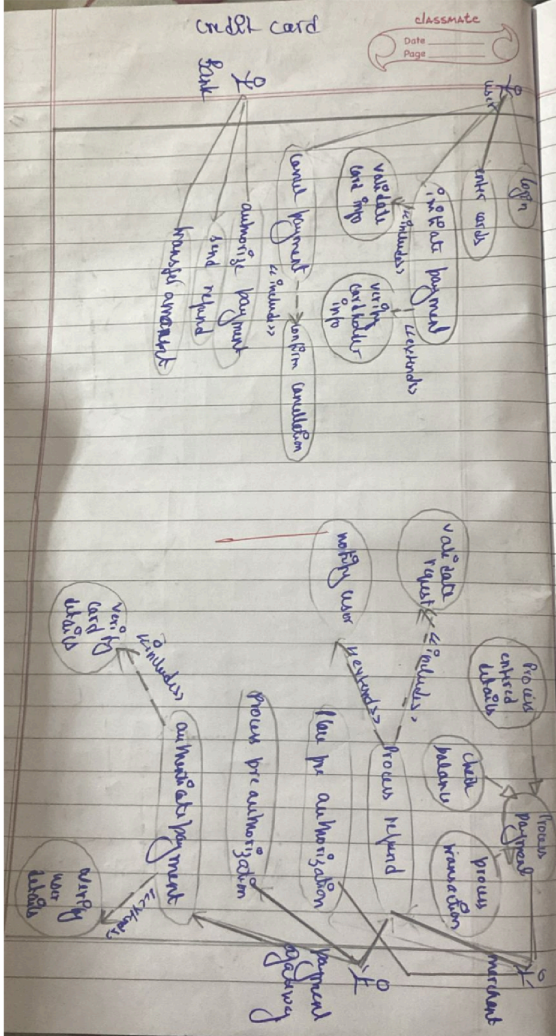 classmate
Date
Page
credit card
user
login
enter cards
initiate payment
<<includes>>
validate
card info
<<extends>>
verify
cardholder
info
cancel payment
<<includes>>
confirm cancellation
Bank
authorize payment
send refund
transfer amount
merchent
Process
payment
Process
entered
details
check
balance
process
transaction
Process refund
<<includes>>
validate
request
<<extends>>
notify user
pre authorization
process pre authorization
payment
authenticate payment
<<includes>>
verify
card
details
user
details